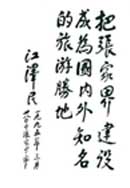 把張家界建設
成為國内外知名
的旅游勝地
江澤民
一九九五年三月